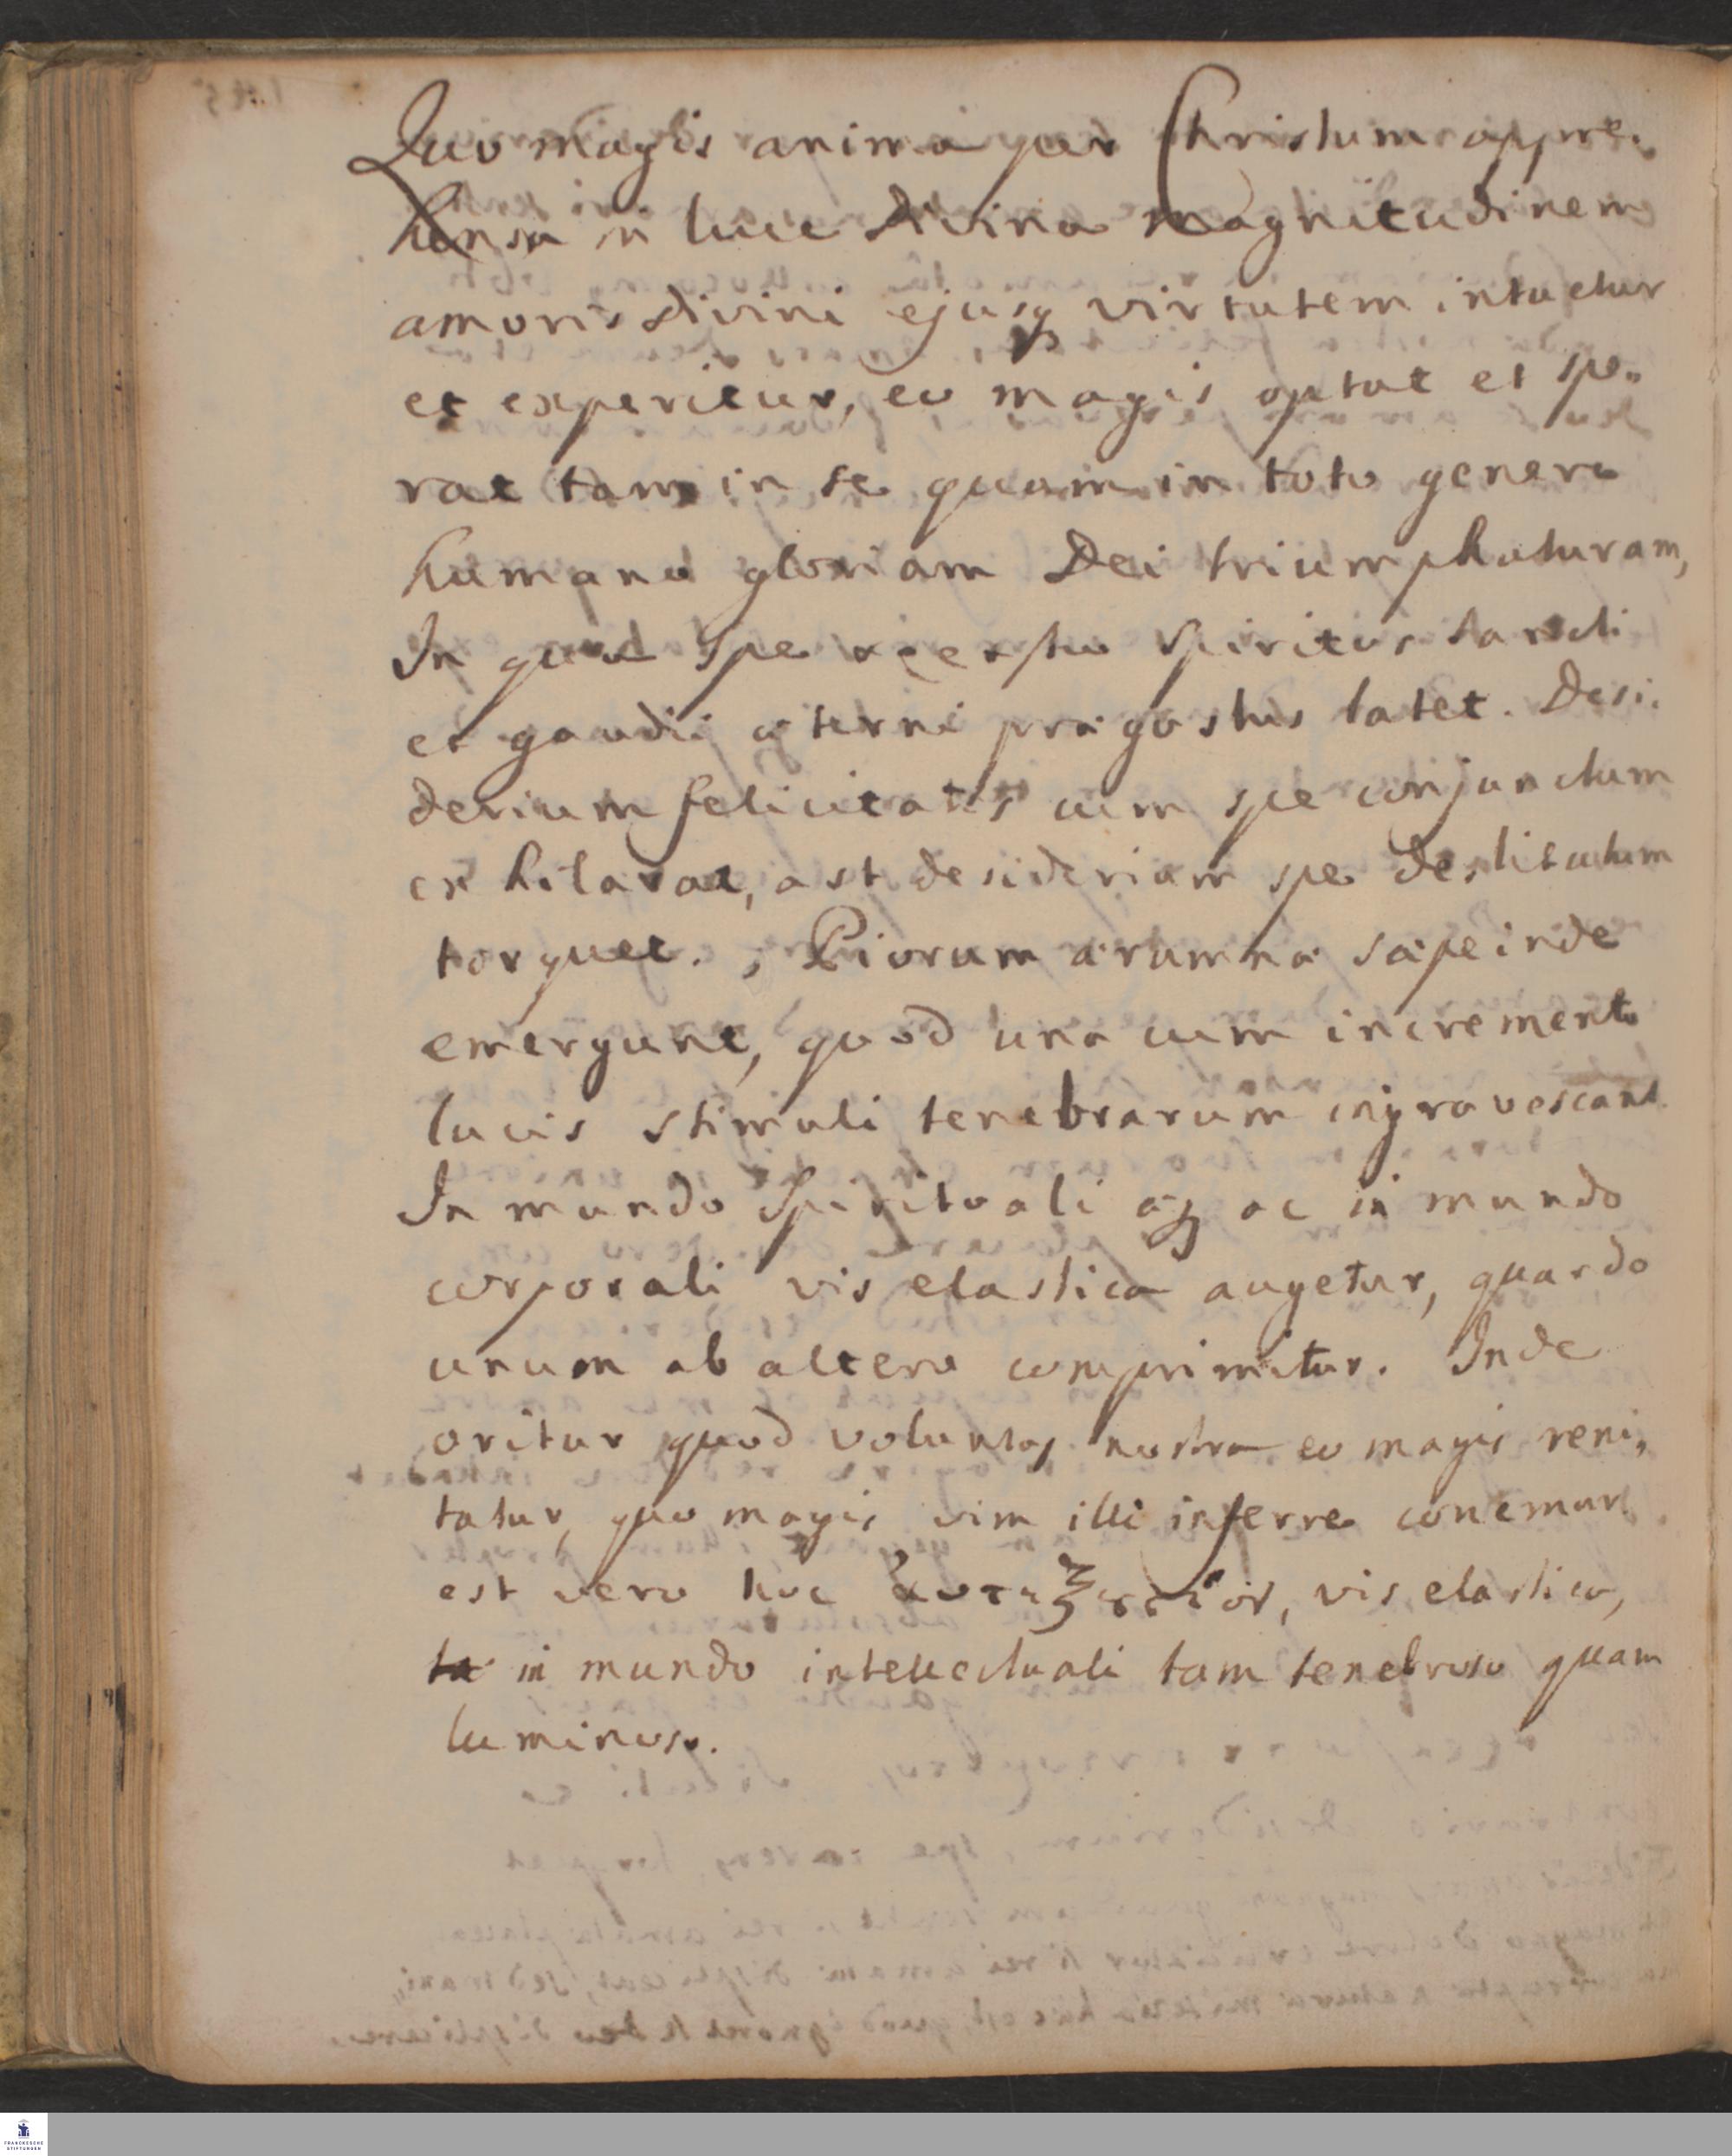 Quo magis anima per Christum appre-
hensa in luce divina magnitudinem
amoris divini ejusq virtutem intuetur
et experitur, eo magis optat et spe-
rat tam in se quam in toto genere
humano gloriam Dei triumphaturam,
In qua spe Spiritus Sancti
et gaudii æterni prægustus latet. Desi-
derium felicitatis cum spe conjunctum
exhilarat, ast desiderium spe destitutum
torquet. Piorum ærumnæ sæpe inde
emergunt, quod una cum incremento
lucis stimuli tenebrarum ingravescant.
In mundo Spirituali æq ac in mundo
corporali vis elastica augetur, quando
unum ab altero comprimitur. Inde
oritur quod voluntas nostra eo magis reni-
tatur, quo magis vim illi inferre conemur.
est vero hoc vis elastica,
in mundo intellectuali tam tenebroso quam
luminoso.
FRANCKESCHE
STIFTUNGEN